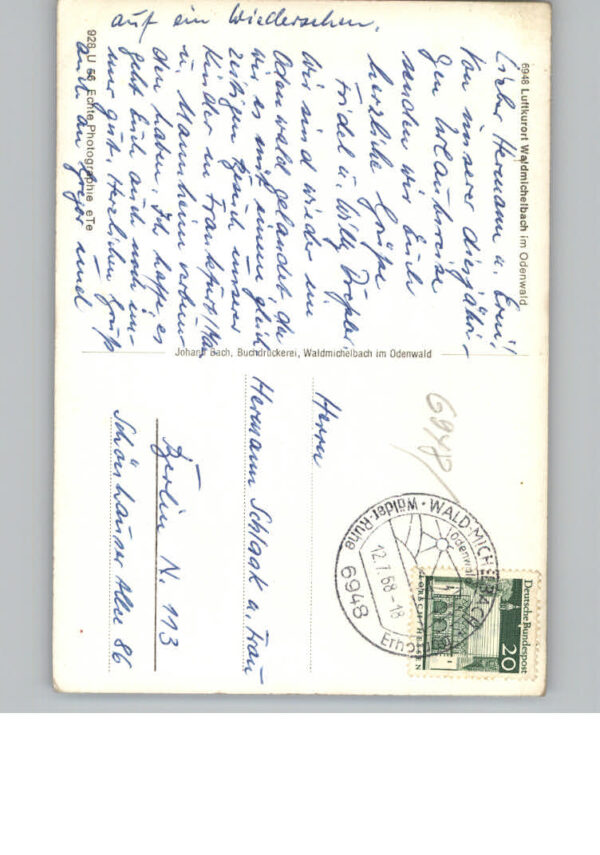 6948 Luftkurort Waldmichelbach im Odenwald
Lieber Hermann u. Erni!
Von unserer diesjähri-
gen Urlaubsreise
senden wir Euch
herzliche Grüße
Fridel u. Willy
Wir sind wieder im
Odenwald gelandet, da
wir es mit einem gleich-
zeitigen Besuch unserer
Kinder in Frankfurt/Ma
u. Mannheim verbun-
den haben. Ich hoffe, es
geht Euch auch noch im-
mer gut. Herzlichen Gruß
auch an Gregor und
auf ein Wiedersehen.
928 U 66 Echte Photographie eTe
Johann Bach, Buchdruckerei, Waldmichelbach im Odenwald
6948
WALD-MICHELBACH
Odenwald
Wälder·Ruhe
Erholung
12.7.68-18
6948
Deutsche Bundespost
20
LORSCH/HESSEN
Herrn
Hermann Schlaak u. Frau
Berlin N. 113
Schönhauser Allee 86